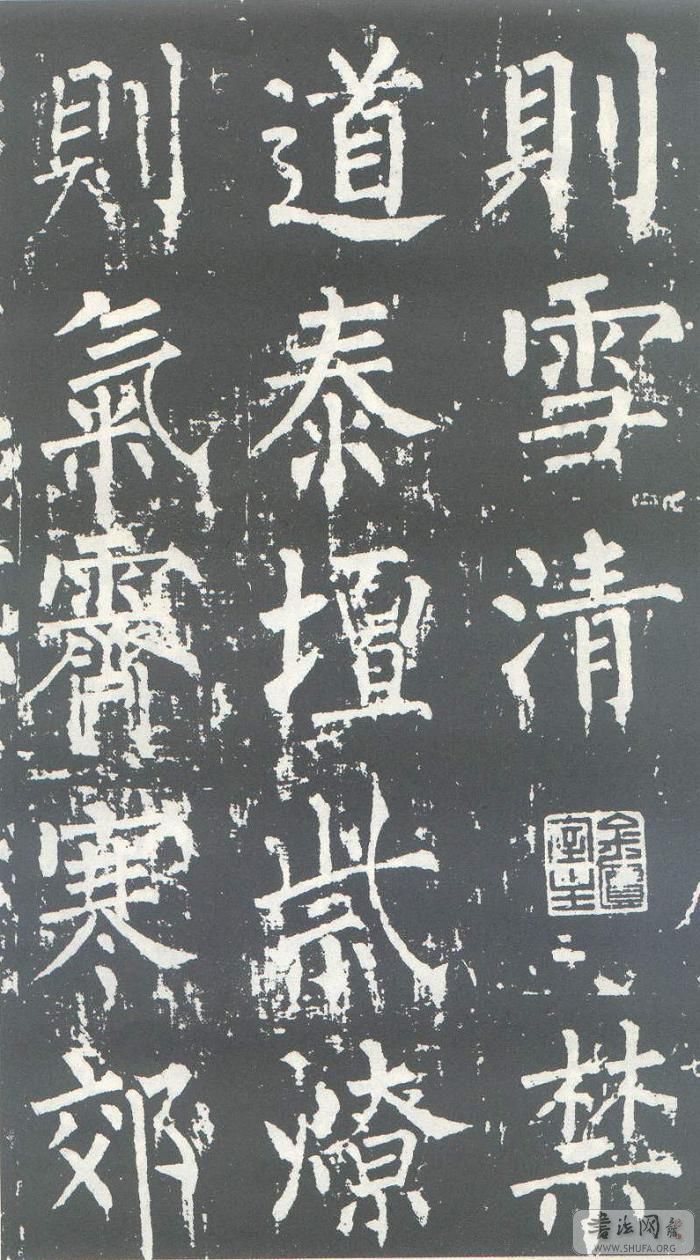 則雪清禁
道泰壇祡燎
則氣霽寒郊
書法网
WWW.SHUFA.ORG